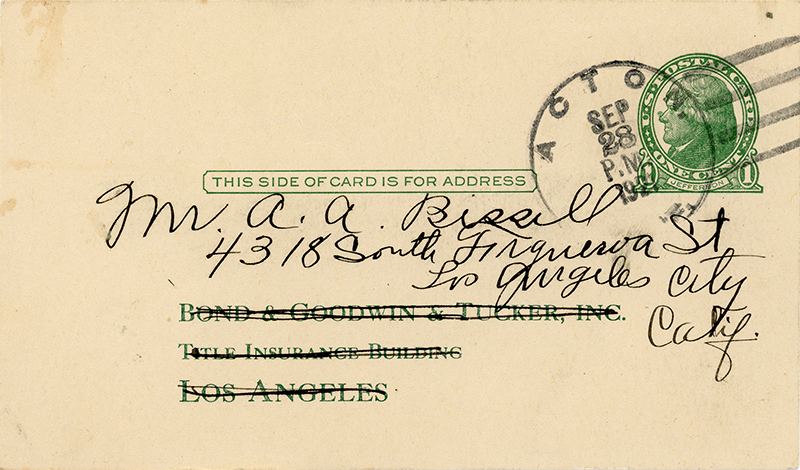 ACTON
SEP
28
P.M.
U.S. POSTAL CARD
ONE CENT
1 JEFFERSON 1
THIS SIDE OF CARD IS FOR ADDRESS
Mr. A. A. Bissell
4318 South Firguerva St
Los Angeles City
Calif.
BOND & GOODWIN & TUCKER, INC.
TITLE INSURANCE BUILDING
LOS ANGELES